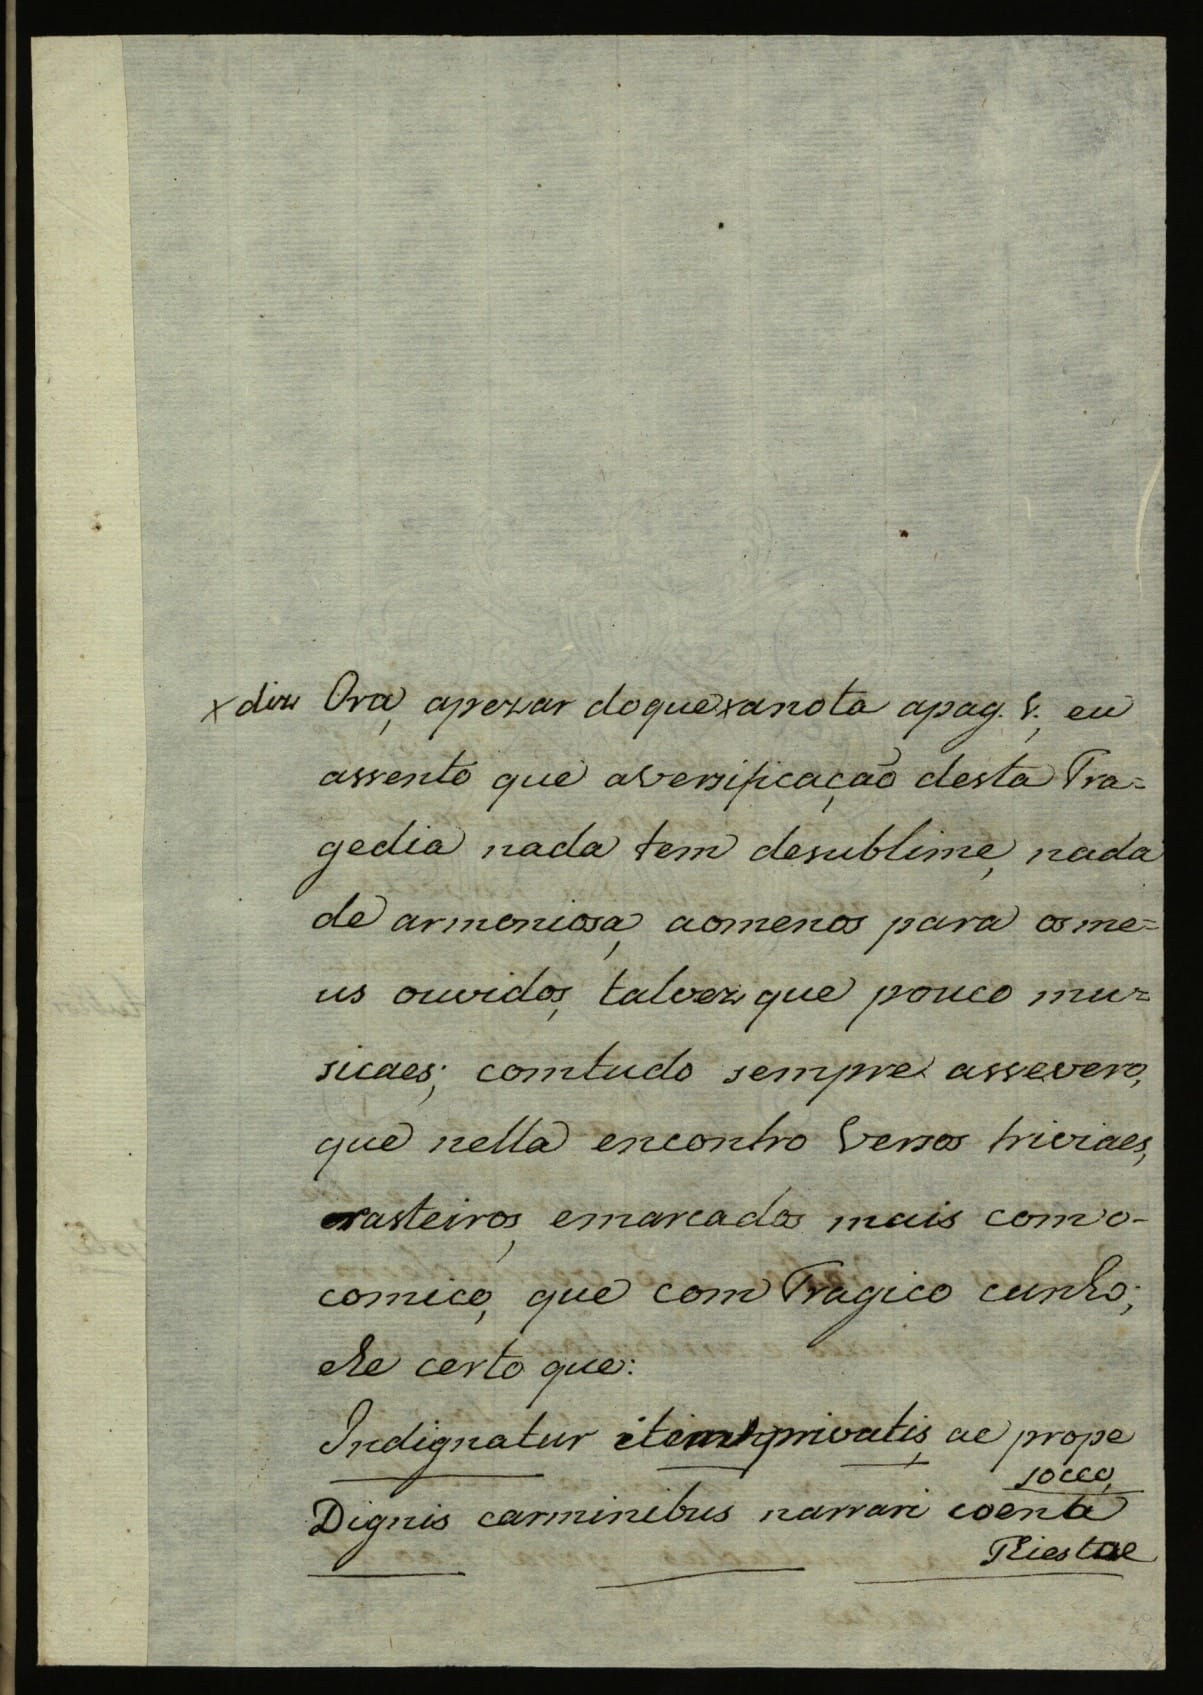 x diz Ora, apezar doque x anota apag. V., eu
assento que aversificação desta Tra=
gedia nada tem desublime, nada
de armoniosa, aomenos para os me=
us ouvidos, talvez que pouco mu=
sicaes; comtudo sempre assevero,
que nella encontro Versos triviaes,
erasteiros, emarcados mais com o-
comico, que com Tragico cunho;
ehe certo que:
Indignatur item privatis, ac prope
socco,
Dignis carminibus narrari coena
Thiestae